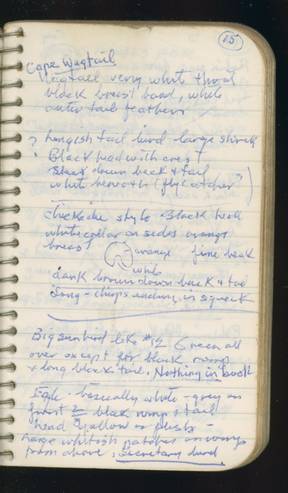 15
Cape Wagtail
Wagtail very white throat
black breast band, white
outer tail feathers
? longish tail bird large shrike
Black head with crest
Black down back & tail
white beneath (flycatcher?)
Chickadee style Black head
white collar on sides orange
breast orange fine beak
white
dark brown down back & tail
Song - chirps ending in squeak
Big sunbird like #12 Green all
over except for black rump
& long black tail. Nothing in book
basically white - grey on
black rump & tail
head yellow
large whitish patches on wings
from above, secretary bird